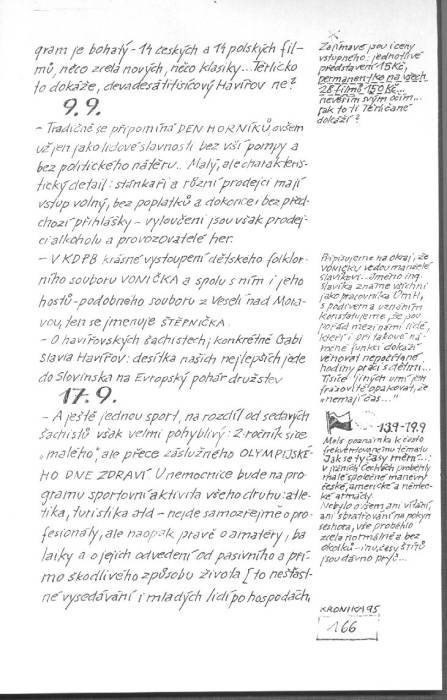 gram je bohatý - 14 českých a 14 polských fil-
mů, něco zcela nových, něco klasiky... Těrlicko
to dokáže, devadesátitisícový Havířov ne?
9.9.
- Tradičně se připomíná DEN HORNÍKŮ, ovšem
už jen jako lidové slavnosti bez vší pompy a
bez politického nátěru.. Malý, ale charakteris-
tický detail: stánkaři a různí prodejci mají
vstup volný, bez poplatků a dokonce i bez před-
chozí přihlášky - vyloučeni jsou však prodej-
ci alkoholu a provozovatelé her.
- V KDPB krásné vystoupení dětského folklor-
ního souboru VONIČKA a spolu s ním i jeho
hostů - podobného souboru z Veselí nad Mora-
vou, ten se jmenuje ŠTĚPNIČKA.
- O havířovských šachistech; konkrétně Gabi
Slavia Havířov: desítka našich nejlepších jede
do Slovinska na Evropský pohár družstev
17.9.
- A ještě jednou sport, na rozdíl od sedavých
šachistů však velmi pohyblivý: 2. ročník sice
"malého", ale přece záslužného OLYMPIJSKÉ-
HO DNE ZDRAVÍ. U nemocnice bude na pro-
gramu sportovní aktivita všeho druhu: atle-
tika, turistika atd - nejde samozřejmě o pro-
fesionály, ale naopak právě o amatéry, ba
laiky a o jejich odvedení od pasivního a pří-
mo škodlivého způsobu života [to nešťast-
né vysedávání i mladých lidí po hospodách,
Zajímavé jsou i ceny
vstupného: jednotlivé
představení 15 Kč,
permanentka na všech
28 filmů 150 Kč...
nevěřím svým očím...
jak to ti Těrličané
dokáží?
Připisujeme na okraj, že
VONIČKU vedou manželé
Slavíkovi. Jméno ing.
Slavíka známe všichni
jako pracovníka ÚmH,
s podivem a uznáním
konstatujeme, že jsou
pořád mezi námi lidé,
kteří i při takové ná-
mené funkci dokáží
věnovat nepočítané
hodiny práci s dětmi...
Tisíce jiných umí jen
frázovitě opakovat, že
"nemají čas..."
13.9-19.9
Malá poznámka k často
frekventovanému tématu
Jak se ty časy mění...:
v jižních Čechách proběhly
malé společné manévry
české, americké a němec-
ké armády.
Nebylo ovšem ani vítání,
ani sbratřování na pokyn
seshora, vše proběhlo
zcela normálně a bez
okolků - inu, časy
jsou dávno pryč...
KRONIKA 95
166